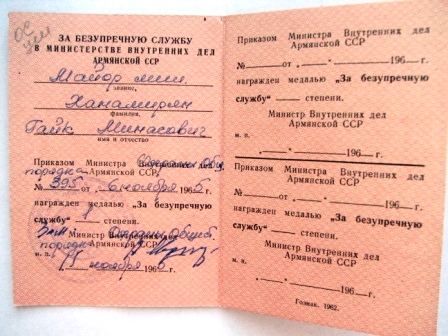 ЗА БЕЗУПРЕЧНУЮ СЛУЖБУ
В МИНИСТЕРСТВЕ ВНУТРЕННИХ ДЕЛ
АРМЯНСКОЙ ССР
Майор мил.
звание,
Ханамирян
фамилия,
Гайк Минасович
имя и отчество
Приказом Министра Охраны Общ.
порядка Армянской ССР
№ 395 от 6 ноября 1965 г.
награжден медалью „За безупречную
службу" 1 степени.
Зам Министр Внутренних дел Охраны Общест.
порядка Армянской ССР
м. п.
ноября 196 г.
Приказом Министра Внутренних Дел
Армянской ССР
№ от „ " 196 г.
награжден медалью „За безупречную
службу" степени.
Министр Внутренних Дел
Армянской ССР
м. п.
„ " 196 г.
Приказом Министра Внутренних Дел
Армянской ССР
№ от „ " 196 г.
награжден медалью „За безупречную
службу" степени.
Министр Внутренних Дел
Армянской ССР
м. п.
„ " 196 г.
Гознак. 1962.